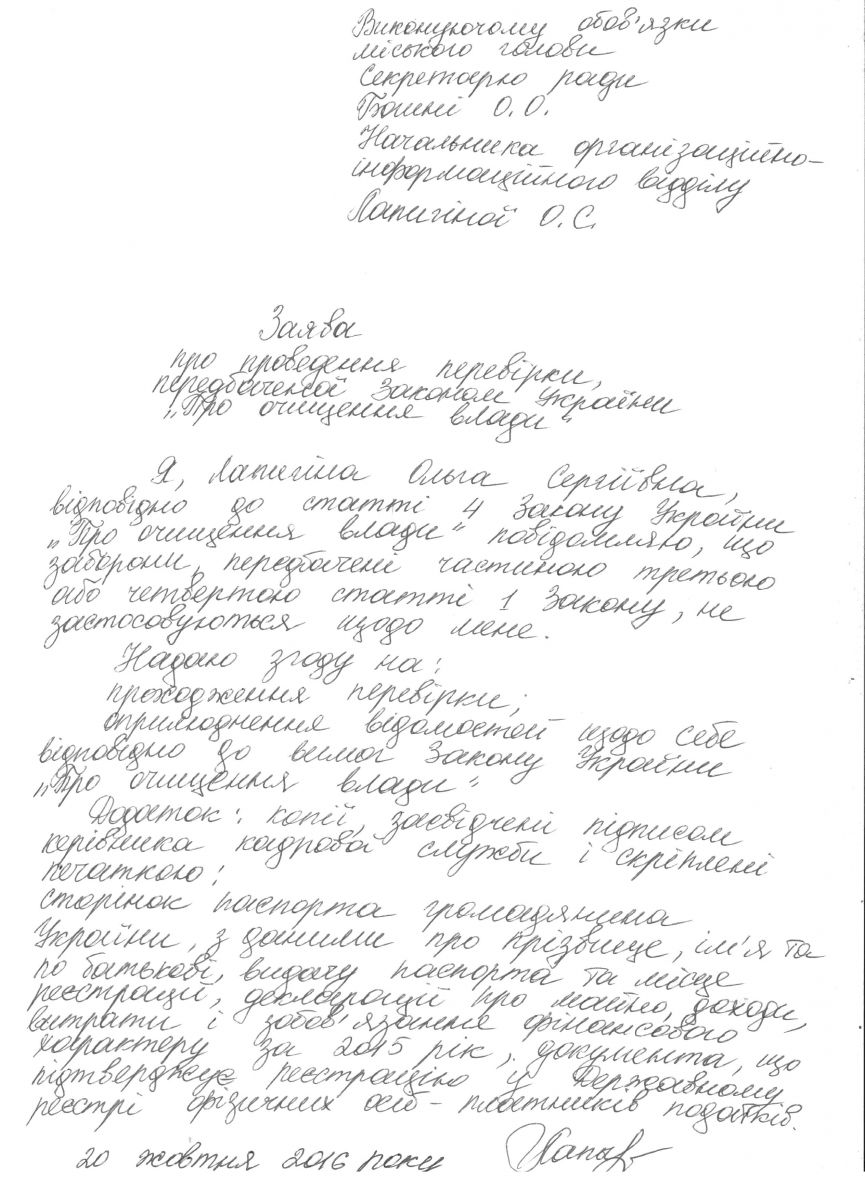 Виконуючому обов'язки
міського голови
Секретарю ради
Бошні О.О.
Начальника організаційно-
інформаційного відділу
Лапигіної О.С.
Заява
про проведення перевірки,
передбаченої Законом України
„Про очищення влади"
Я, Лапигіна Ольга Сергіївна,
відповідно до статті 4 Закону України
„Про очищення влади" повідомляю, що
заборони, передбачені частиною третьою
або четвертою статті 1 Закону, не
застосовуються щодо мене.
Надаю згоду на:
проходження перевірки;
оприлюднення відомостей щодо себе
відповідно до вимог Закону України
„Про очищення влади"
Додаток: копії, засвідчені підписом
керівника кадрової служби і скріплені
печаткою:
сторінок паспорта громадянина
України, з даними про прізвище, ім'я та
по батькові, видачу паспорта та місце
реєстрації, декларації про майно, доходи,
витрати і зобов'язання фінансового
характеру за 2015 рік, документа, що
підтверджує реєстрацію у Державному
реєстрі фізичних осіб - платників податків.
20 жовтня 2016 року